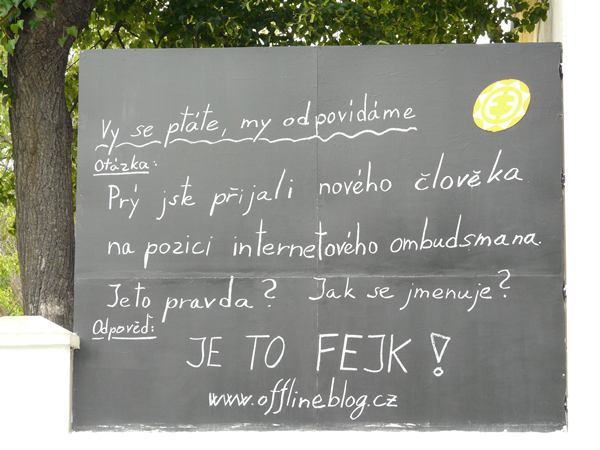 Vy se ptáte, my odpovídáme
Otázka:
Prý jste přijali nového člověka
na pozici internetového ombudsmana.
Jeto pravda? Jak se jmenuje?
Odpověď:
JE TO FEJK!
www.offlineblog.cz